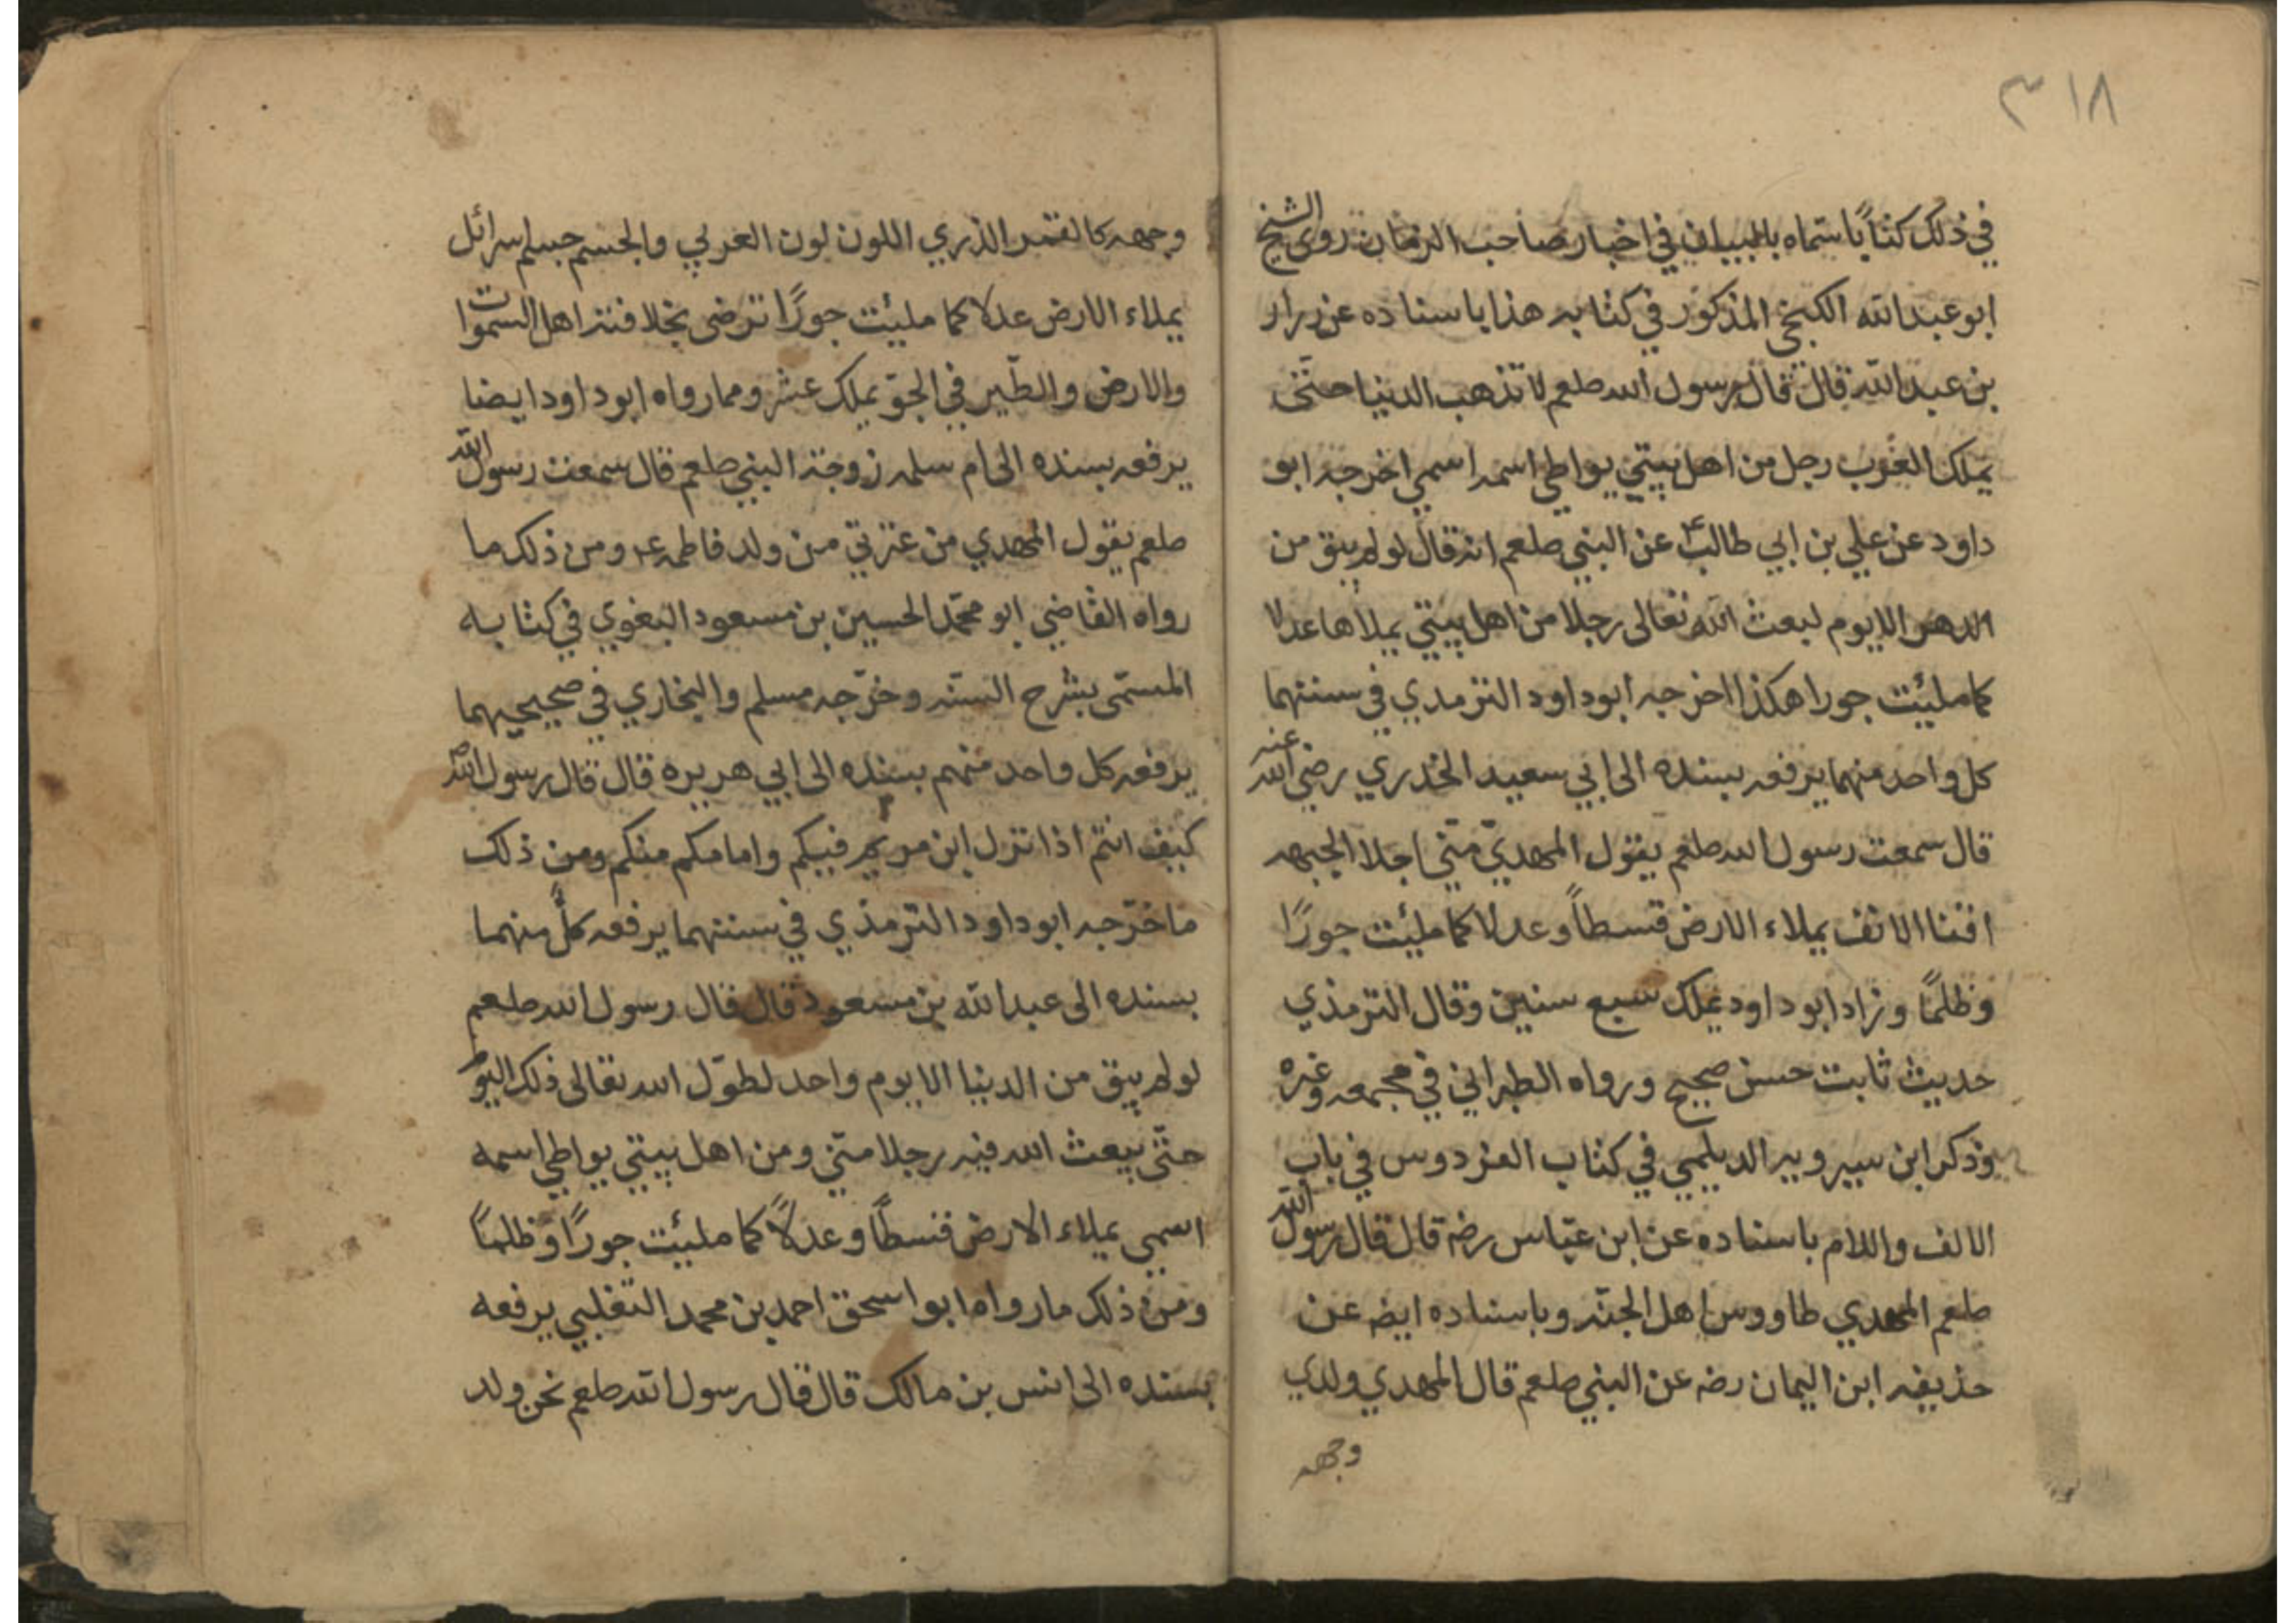 ٣١٨
في ذلك كتاباً سماه بالبيان في اخبار صاحب الزمان روى الشيخ
ابو عبد الله الكنجي المذكور في كتابه هذا باسناده عن زرار
بن عبد الله قال قال رسول الله صلعم لا تذهب الدنيا حتّى
يملك العرب رجل من اهل بيتي يواطي اسمه اسمي اخرجه ابو
داود عن علي بن ابي طالب ع عن النبي صلعم انه قال لو لم يبق من
الدهر الا يوم لبعث الله تعالى رجلا من اهل بيتي يملاها عدلا
كما ملئت جورا هكذا اخرجه ابو داود الترمدي في سننهما
كل واحد منهما يرفعه بسنده الى ابي سعيد الخدري رضي الله عنه
قال سمعت رسول الله صلعم يقول المهديّ منّي اجلا الجبهه
اقنا الانف يملاء الارض قسطاً وعدلا كما ملئت جورًا
وظلمًا وزاد ابو داود يملك سبع سنين وقال الترمذي
حديث ثابت حسن صحيح ورواه الطبراني في مجمعه وغيره
وذكر ابن سيرويه الديلمي في كتاب الفردوس في باب
الالف واللام باسناده عن ابن عبّاس رضه قال قال رسول الله
صلعم المهدي طاووس اهل الجنّه وباسناده ايضه عن
حذيفه ابن اليمان رضه عن النبي صلعم قال المهدي ولدي
وجهه
وجهه كالقمر الدري اللون لون العربي والجسم جسم اسرائل
يملاء الارض عدلا كما ملئت جورًا ترضى بخلافته اهل السموات
والارض والطّير في الجوّ يملك عشر ومما رواه ابو داود ايضا
يرفعه بسنده الى ام سلمه زوجة النبي صلعم قال سمعت رسول الله
صلعم يقول المهدي من عترتي من ولد فاطمه ع ومن ذلك ما
رواه القاضي ابو محمّد الحسين بن مسعود البغوي في كتابه
المسمّى بشرح السنّه وخرّجه مسلم والبخاري في صحيحيهما
يرفعه كل واحد منهم بسنده الى ابي هريره قال قال رسول الله ص
كيف انتم اذا نزل ابن مريم فيكم وامامكم منكم ومن ذلك
ما خرّجه ابو داود الترمذي في سننهما يرفعه كلٌّ منهما
بسنده الى عبد الله بن مسعود قال قال رسول الله صلعم
لو لم يبق من الدنيا الا يوم واحد لطوّل الله تعالى ذلك اليوم
حتّى يبعث الله فيه رجلا منّي ومن اهل بيتي يواطي اسمه
اسمي يملاء الارض قسطًا وعدلاً كما ملئت جورًا وظلمًا
ومن ذلك ما رواه ابو اسحق احمد بن محمد الثعلبي يرفعه
بسنده الى انس بن مالك قال قال رسول الله صلعم نحن ولد